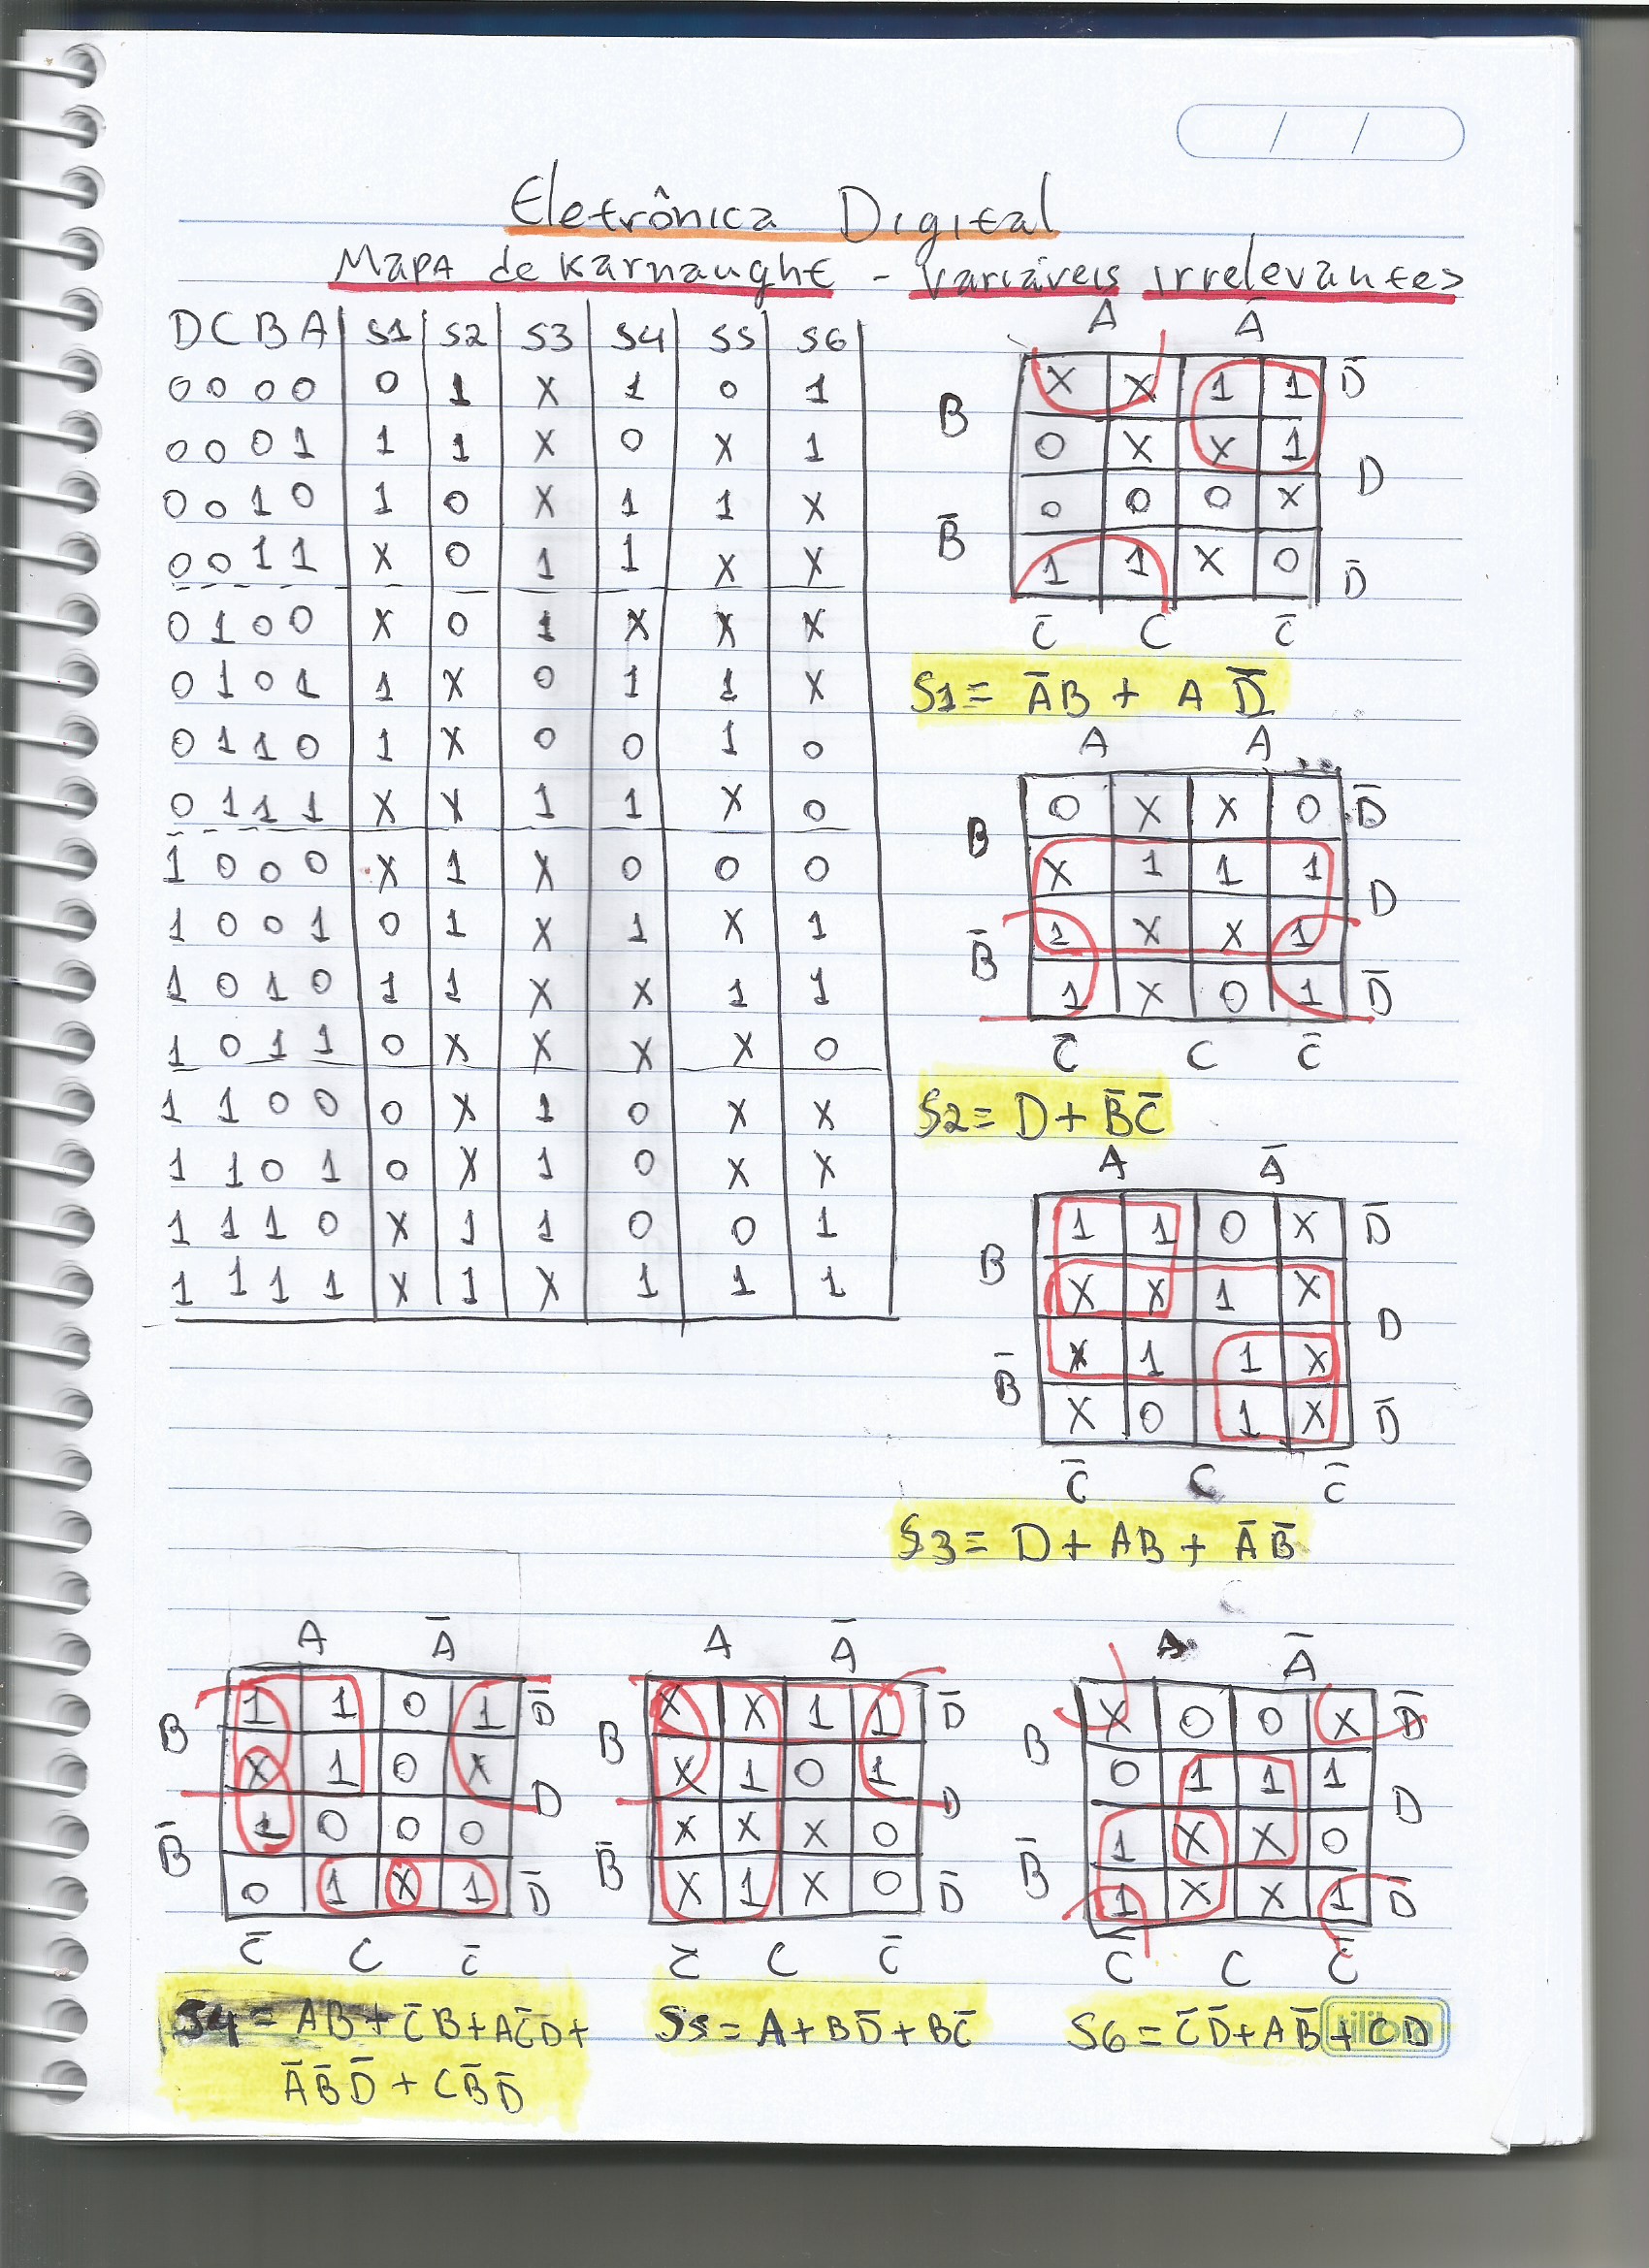 / /
Eletrônica Digital
Mapa de Karnaught - Variáveis irrelevantes
D C B A | S1 | S2 | S3 | S4 | S5 | S6
0 0 0 0 0 1 X 1 0 1
0 0 0 1 1 1 X 0 X 1
0 0 1 0 1 0 X 1 1 X
0 0 1 1 X 0 1 1 X X
0 1 0 0 X 0 1 X X X
0 1 0 1 1 X 0 1 1 X
0 1 1 0 1 X 0 0 1 0
0 1 1 1 X X 1 1 X 0
1 0 0 0 X 1 X 0 0 0
1 0 0 1 0 1 X 1 X 1
1 0 1 0 1 1 X X 1 1
1 0 1 1 0 X X X X 0
1 1 0 0 0 X 1 0 X X
1 1 0 1 0 X 1 0 X X
1 1 1 0 X 1 1 0 0 1
1 1 1 1 X 1 X 1 1 1
A Ā
B X X 1 1 D̄
0 X X 1 D
B̄ 0 0 0 X
1 1 X 0 D̄
C̄ C C̄
S1 = ĀB + A D̄
A A
B 0 X X 0 D̄
X 1 1 1 D
B̄ 1 X X 1
1 X 0 1 D̄
C̄ C C̄
S2 = D + B̄C̄
A Ā
B 1 1 0 X D̄
X X 1 X D
B̄ X 1 1 X
X 0 1 X D̄
C̄ C C̄
S3 = D + AB + ĀB̄
A Ā
B 1 1 0 1 D̄
X 1 0 X D
B̄ 1 0 0 0
0 1 X 1 D̄
C̄ C C̄
S4 = AB + C̄B + AC̄D +
ĀB̄D̄ + CB̄D̄
A Ā
B X X 1 1 D̄
X 1 0 1 D
B̄ X X X 0
X 1 X 0 D̄
C̄ C C̄
S5 = A + BD̄ + BC̄
A Ā
B X 0 0 X D̄
0 1 1 1 D
B̄ 1 X X 0
1 X X 1 D̄
C̄ C C̄
S6 = C̄D̄ + AB̄ + CD